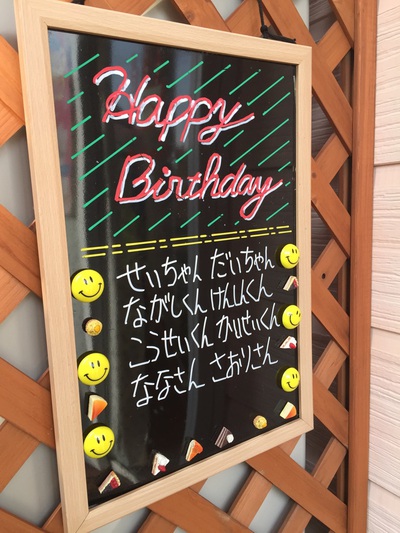 Happy
Birthday
せいちゃん だいちゃん
ながしくん けんしんくん
こうせいくん かいせいくん
ななさん さおりさん